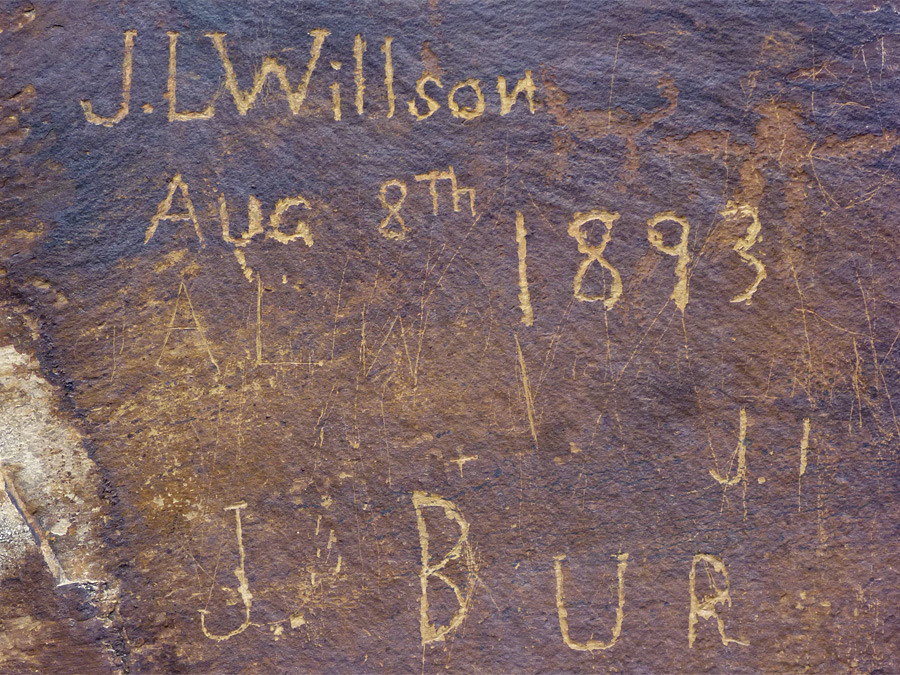 J. L Willson
Aug 8Th
1893
A L N
J. I
J. B U R